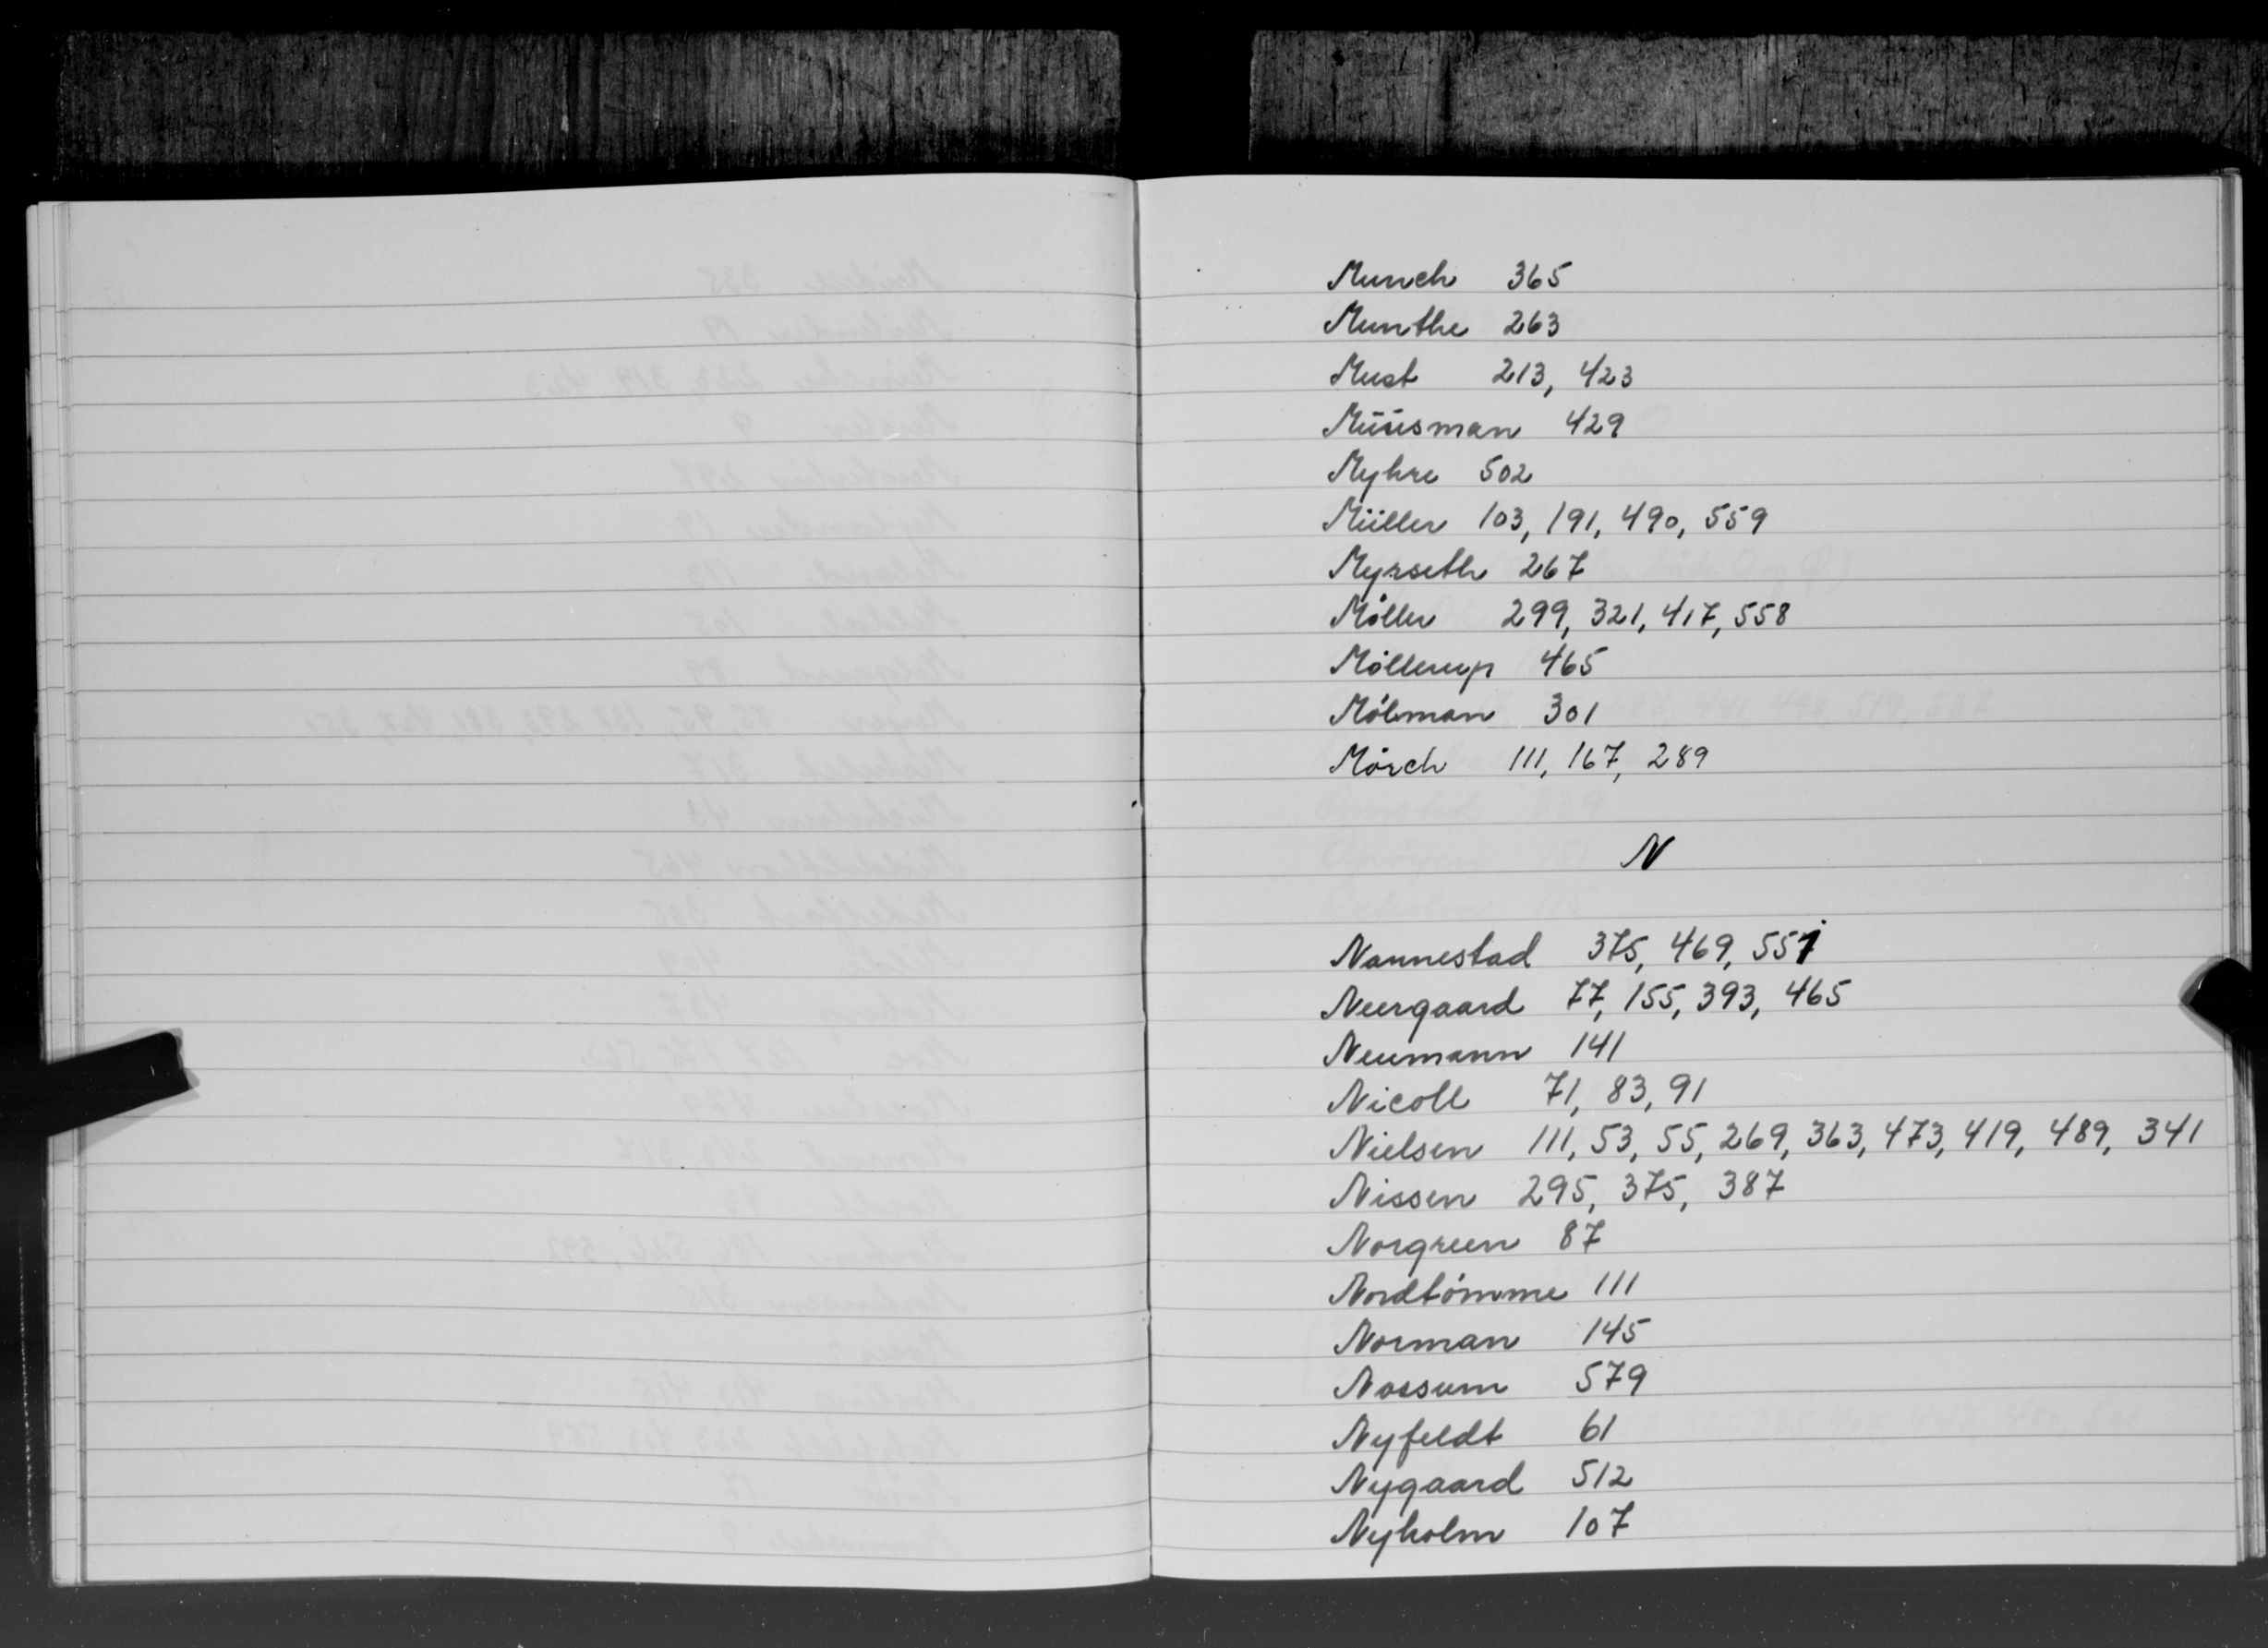 Munch 365
Munthe 263
Must 213, 423
Müüsman 429
Myhre 502
Müller 103, 191, 490, 559
Myrseth 267
Möller 299, 321, 417, 558
Möllerup 465
Mölman 301
Mörch 111, 167, 289
N
Nannestad 375, 469, 551
Neergaard 77, 155, 393, 465
Neumann 141
Nicoll 71, 83, 91
Nielsen 111, 53, 55, 269, 363, 473, 419, 489, 341
Nissen 295, 375, 387
Norgreen 87
Nordtömme 111
Norman 145
Nossum 579
Nyfeldt 61
Nygaard 512
Nyholm 107